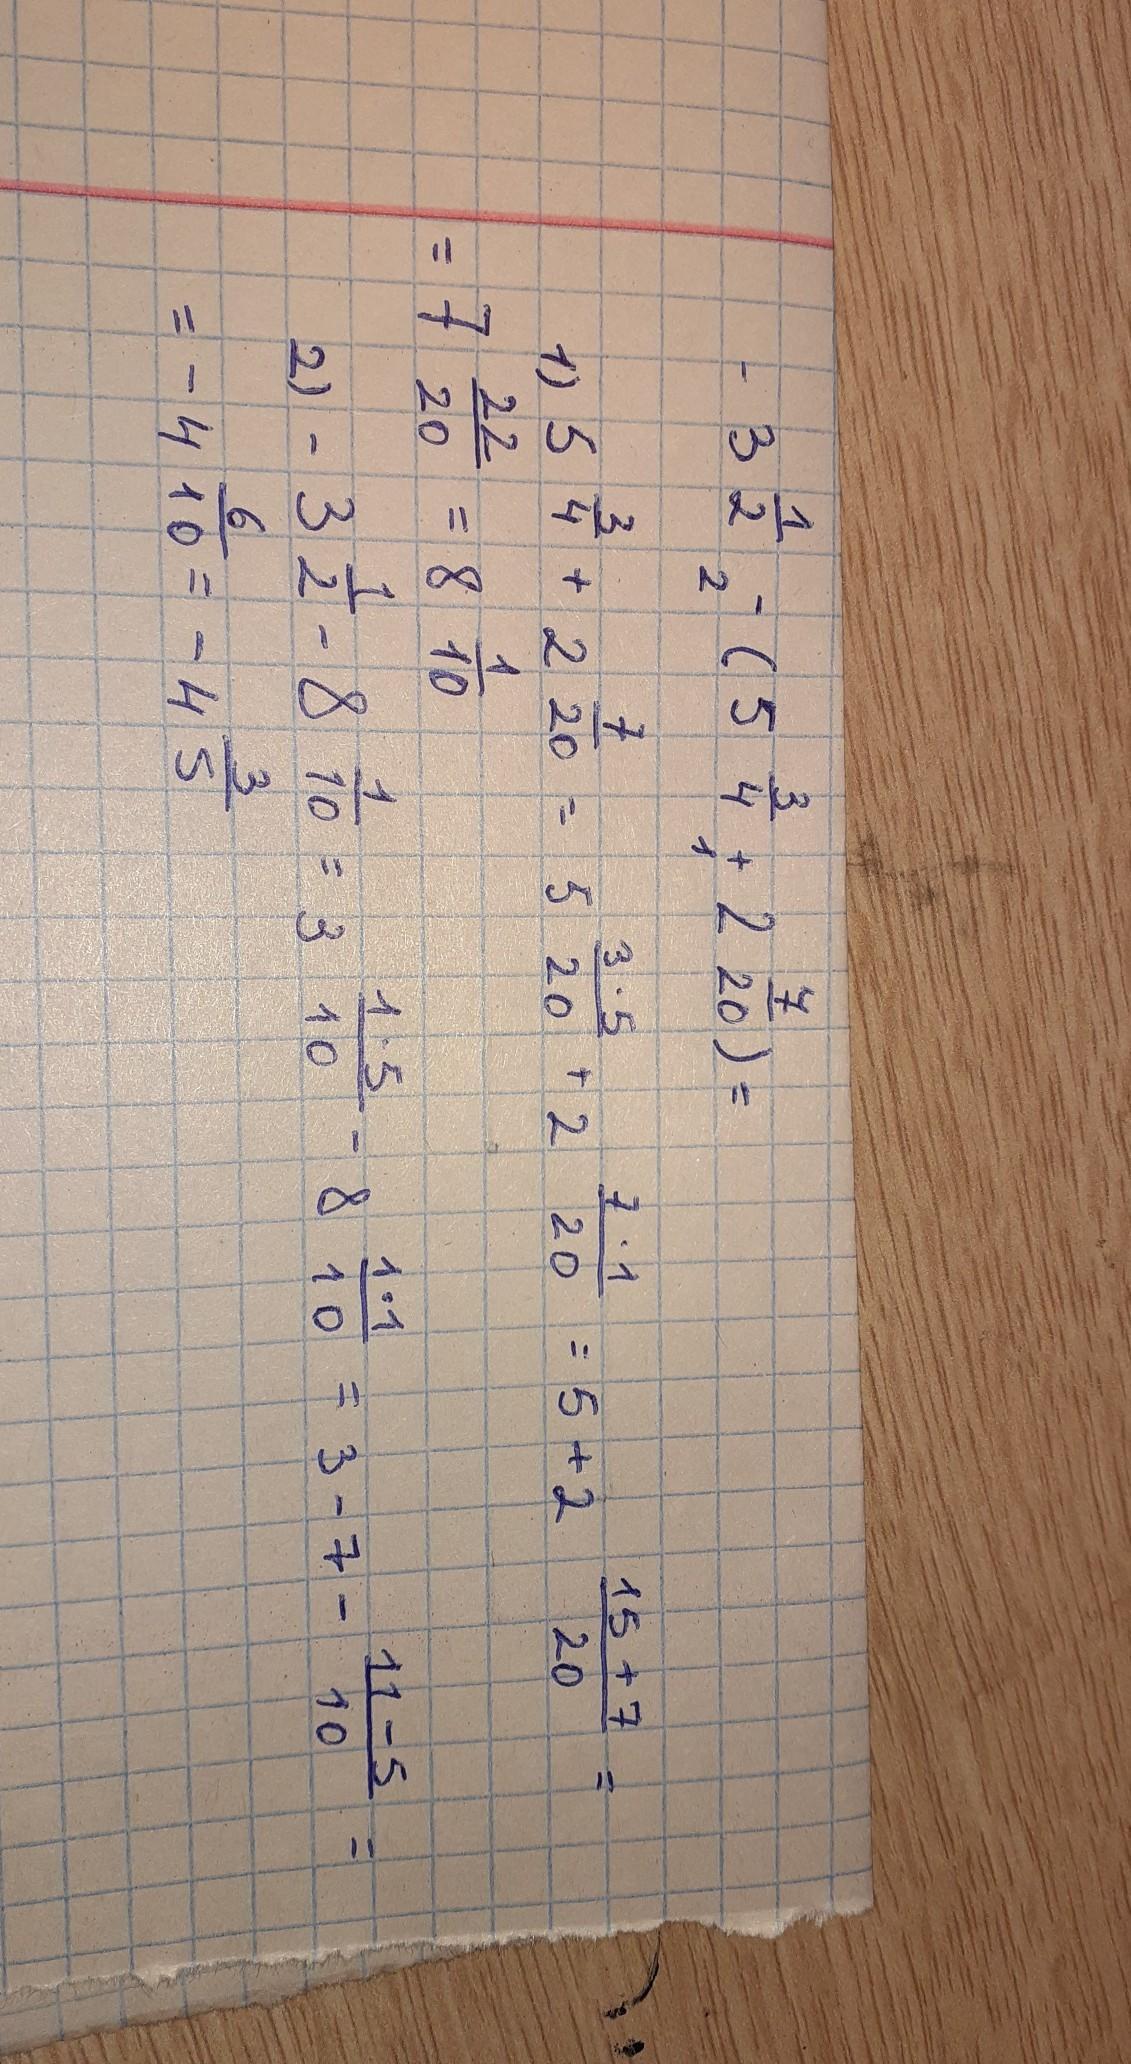 - 3 1/2 - (5 3/4 + 2 7/20) =
2 1
1) 5 3/4 + 2 7/20 = 5 3·5/20 + 2 7·1/20 = 5 + 2 15+7/20 =
= 7 22/20 = 8 1/10
2) - 3 1/2 - 8 1/10 = 3 1·5/10 - 8 1·1/10 = 3 - 7 - 11-5/10 =
= - 4 6/10 = - 4 3/5